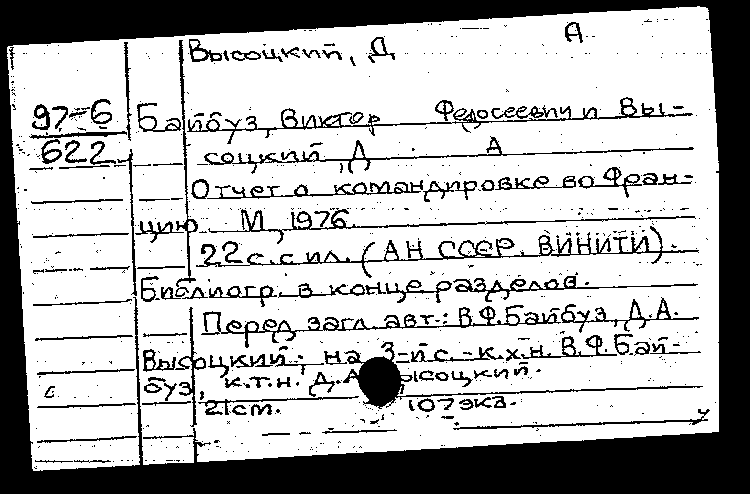 Высоцкий, Д А
97-6 Байбуз, Виктор Федосеевич и Вы-
622 соцкий, Д. А
Отчет о командировке во Фран-
цию. М., 1976.
22 с. с ил. (АН СССР. ВИНИТИ).
Библиогр. в конце разделов.
Перед загл. авт.: В.Ф. Байбуз, Д.А.
Высоцкий; на 3-й с. - к.х.н. В.Ф. Бай-
буз, к.т.н. Д.А. ысоцкий.
с 21 ст. 107 экз.